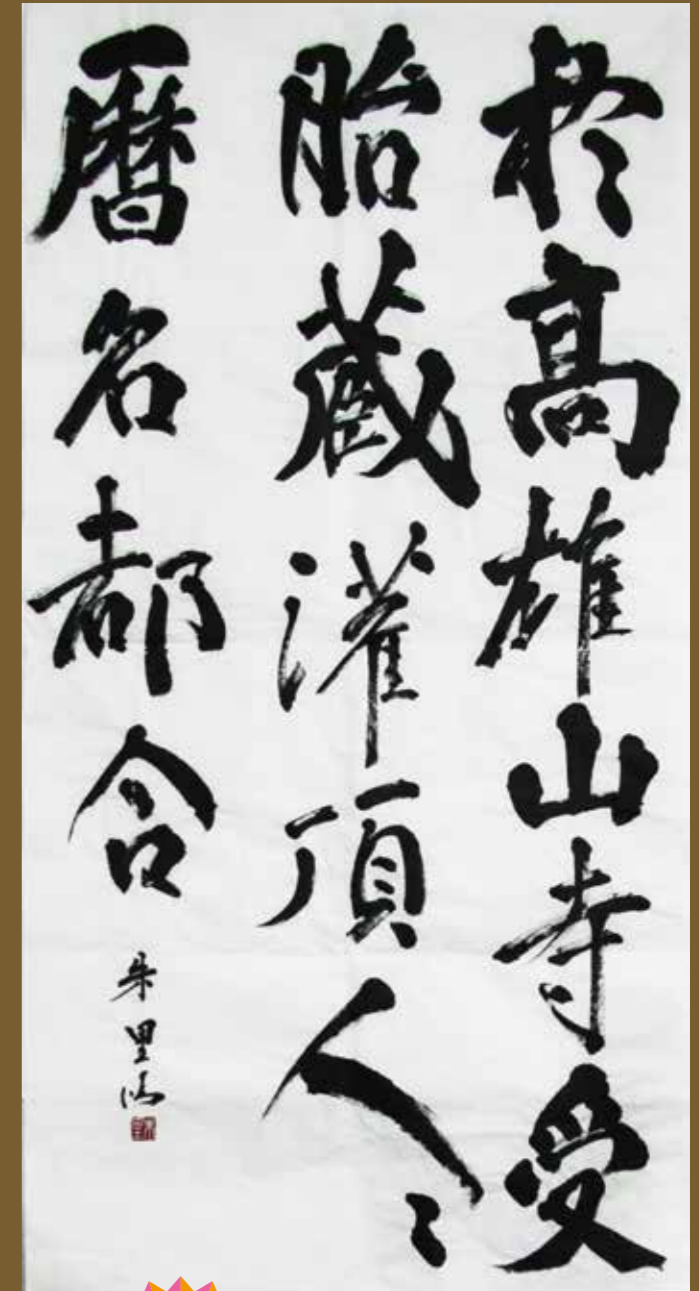 於高雄山寺受
胎蔵灌頂人々
暦名都合
朱里